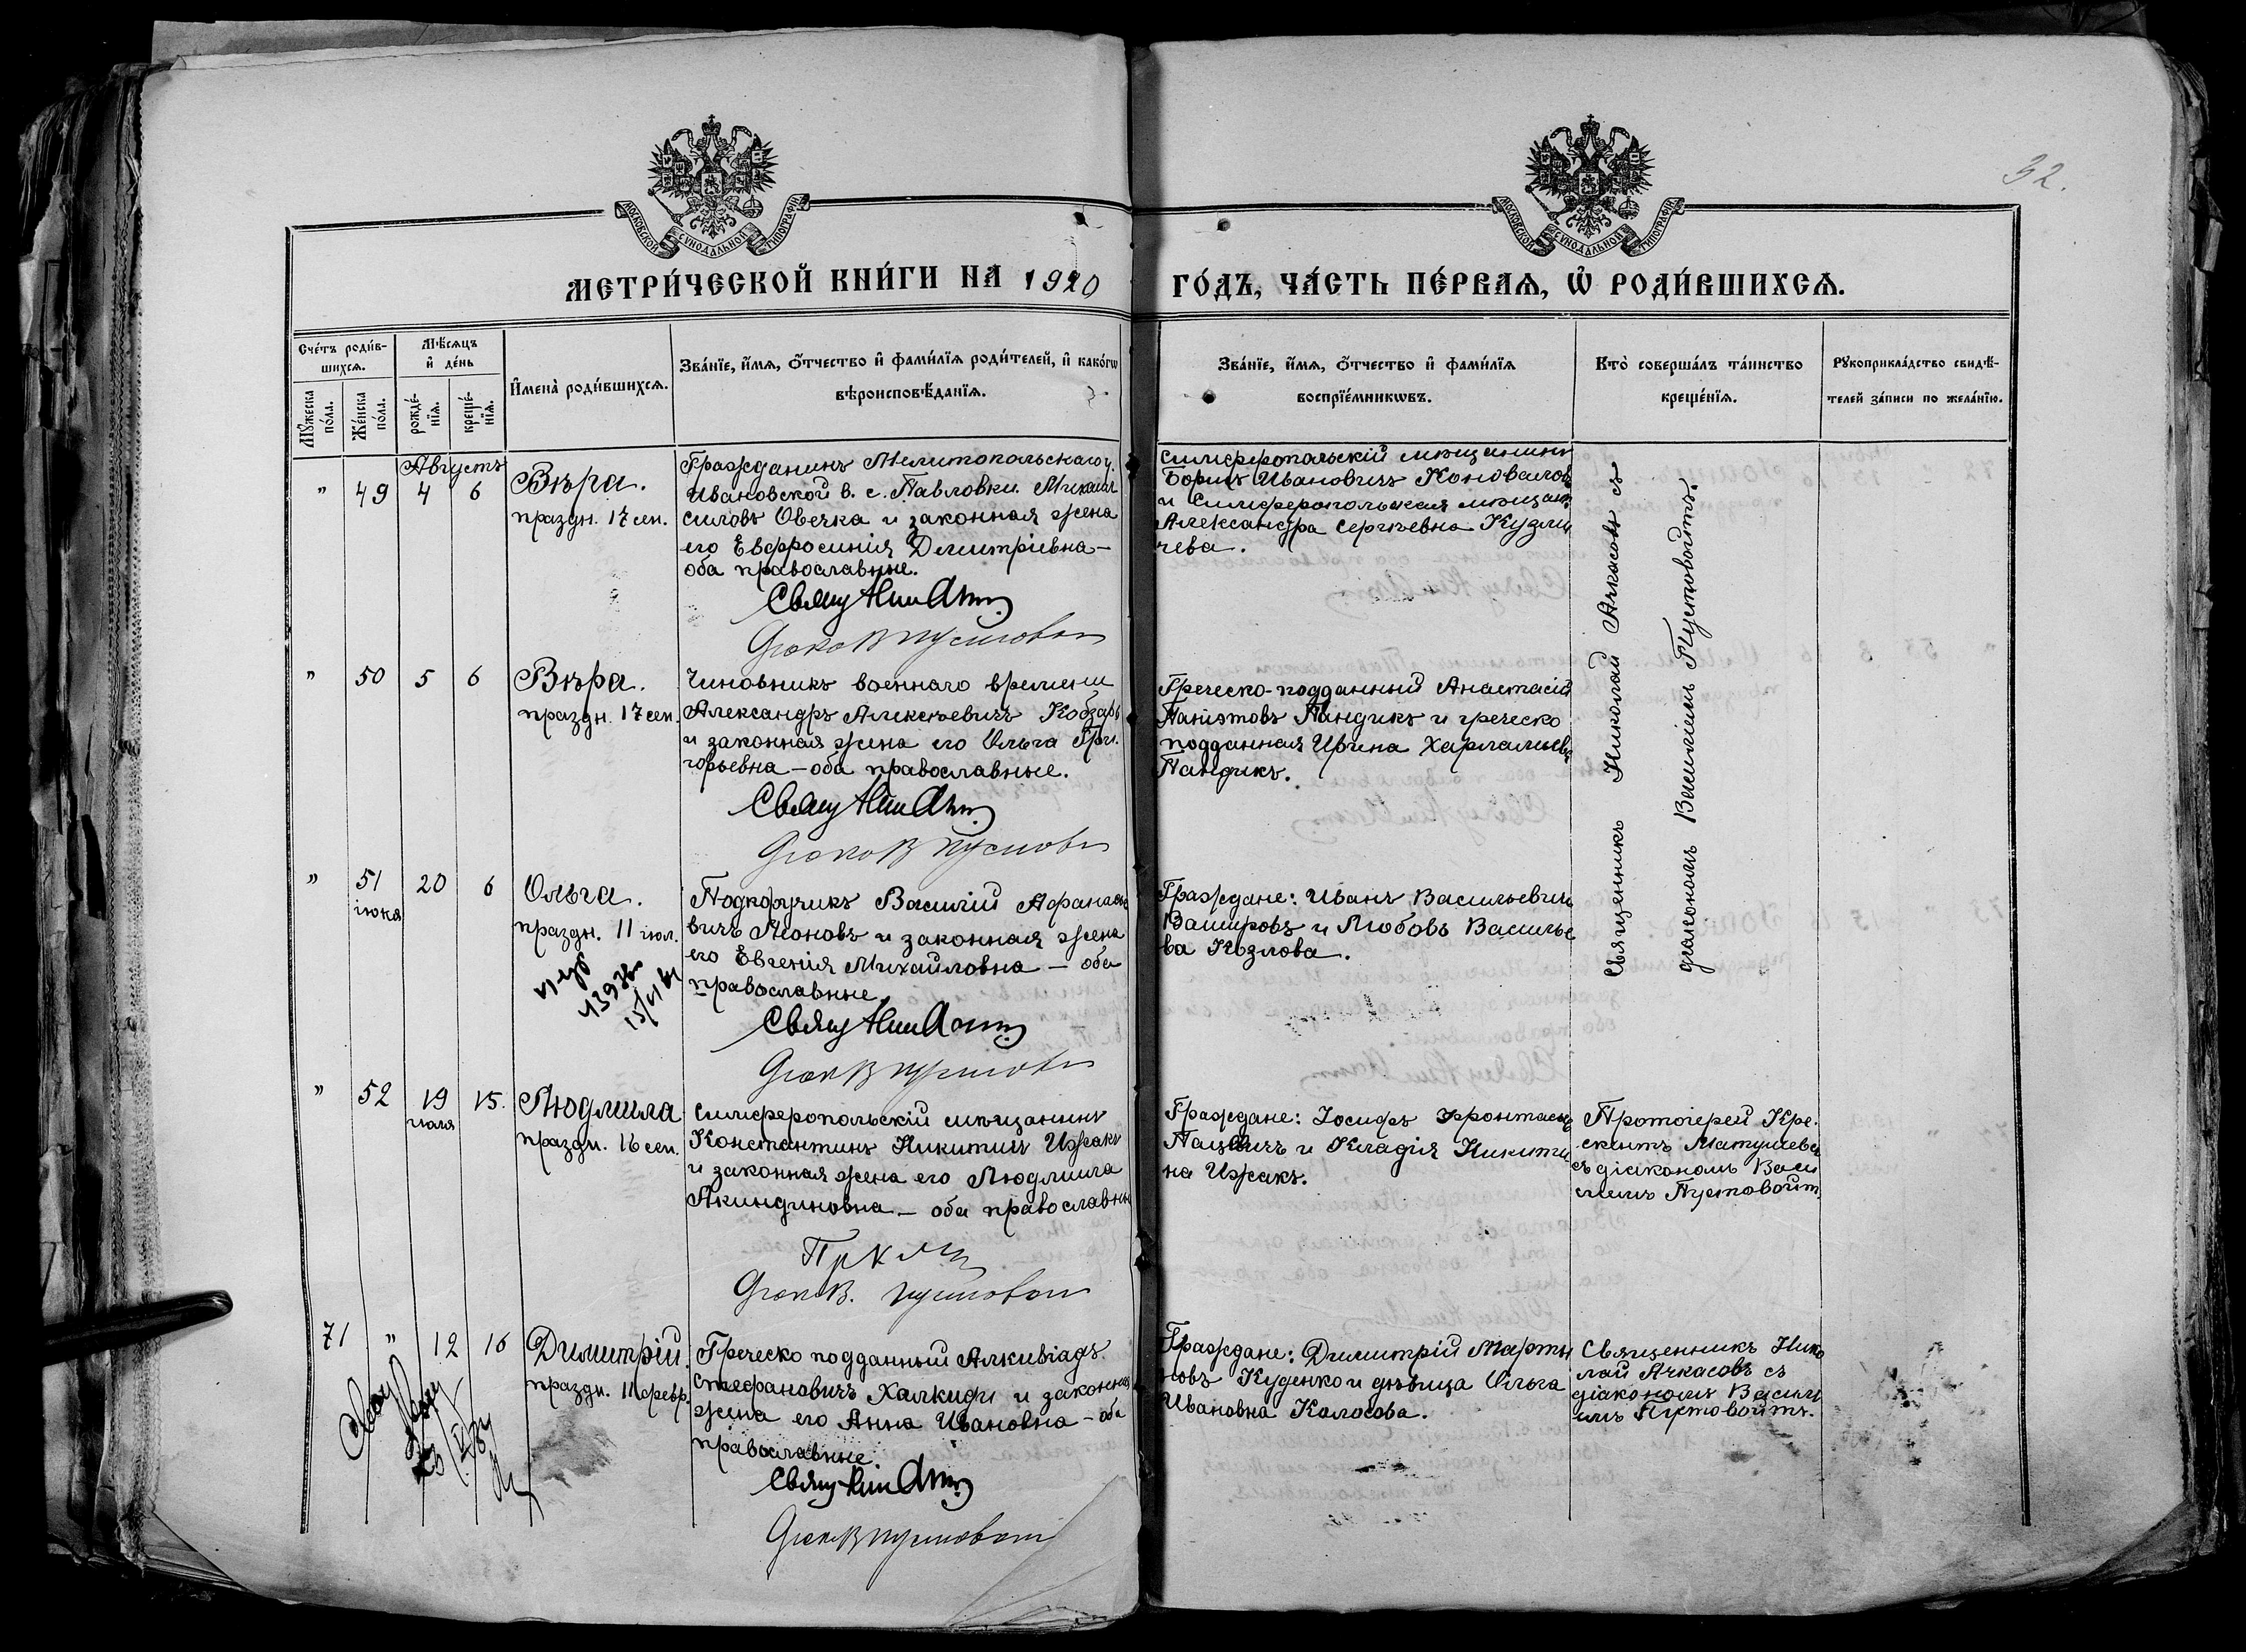 32.
МОСКОВСКОЙ СѴНОДАЛЬНОЙ ТИПОГРАФІИ
МОСКОВСКОЙ СѴНОДАЛЬНОЙ ТИПОГРАФІИ
МЕТРИ́ЧЕСКОЙ КНИ́ГИ НА 1920
ГО́ДЪ, ЧА́СТЬ ПЕ́РВАѦ, Ѡ҆ РОДИ́ВШИХСѦ.
Сче́тъ роди́в-
шихсѧ.
Мѣ́сѧцъ
и҆ де́нь
Мꙋ́жеска
по́ла.
Же́нска
по́ла.
рожде́-
нїѧ.
креще́-
нїѧ.
И҆мена̀ роди́вшихсѧ.
Зва́нїе, и҆́мѧ, о҆́тчество и҆ фами́лїѧ роди́телей, и҆ како́гѡ
вѣроисповѣ́данїѧ.
Зва́нїе, и҆́мѧ, о҆́тчество и҆ фами́лїѧ
воспрїе́мникѡвъ.
Кто̀ соверша́лъ та́инство
креще́нїѧ.
Рꙋкоприкла́дство свидѣ́-
телей за́писи по жела́нїю.
Августъ
" 49 4 6
Вѣра.
праздн. 17 сен.
Гражданинъ Мелитопольскаго у.
Ивановской в. с. Павловки Михаил
Силовъ Овечка и законная жена
его Евфросинія Димитріевна –
оба православные.
Симферопольскій мѣщанинъ
Борисъ Ивановичъ Коновалов
и Симферопольская мѣщан.
Александра Сергѣевна Кузми
чева.
Священникъ Николай Ачкасовъ съ
діакономъ Василіемъ Пустовойтъ.
" 50 5 6
Вѣра.
праздн. 17 сен.
Чиновникъ военнаго времени
Александръ Алексѣевичъ Кобзарь
и законная жена его Ольга Гри-
горьевна – оба православные.
Греческо-подданный Анастасій
Пандикъ и греческо
подданная Ирина
Пандикъ.
" 51 20 6
іюня
Ольга.
праздн. 11 іюл.
Подпоручикъ Василій Афанасье
вичъ Леоновъ и законная жена
его Евгенія Михайловна – оба
православные.
Граждане: Иванъ Васильевичъ
и Любовь Василье
ва Козлова.
" 52 19 15.
іюля
Людмила
праздн. 16 сен.
Симферопольскій мѣщанинъ
Константинъ Никитинъ Ижакъ
и законная жена его Людмила
Акиндиновна – оба православны
Граждане: Іосифъ
и Клавдія Никити
на Ижакъ.
Протоіерей Кре-
скентъ Матушев
съ діакономъ Васи
ліемъ Пустовойт.
71 " 12 16
Димитрій.
праздн. 11 февр.
Греческо подданный Алкивіадъ
Стефановичъ Халкиди и законная
жена его Анна Ивановна – оба
православные.
Граждане: Димитрій Марты
новъ Куценко и дѣвица Ольга
Ивановна Колосова.
Священникъ Нико
лай Ачкасовъ съ
діакономъ Васил
іемъ Пустовойтъ.